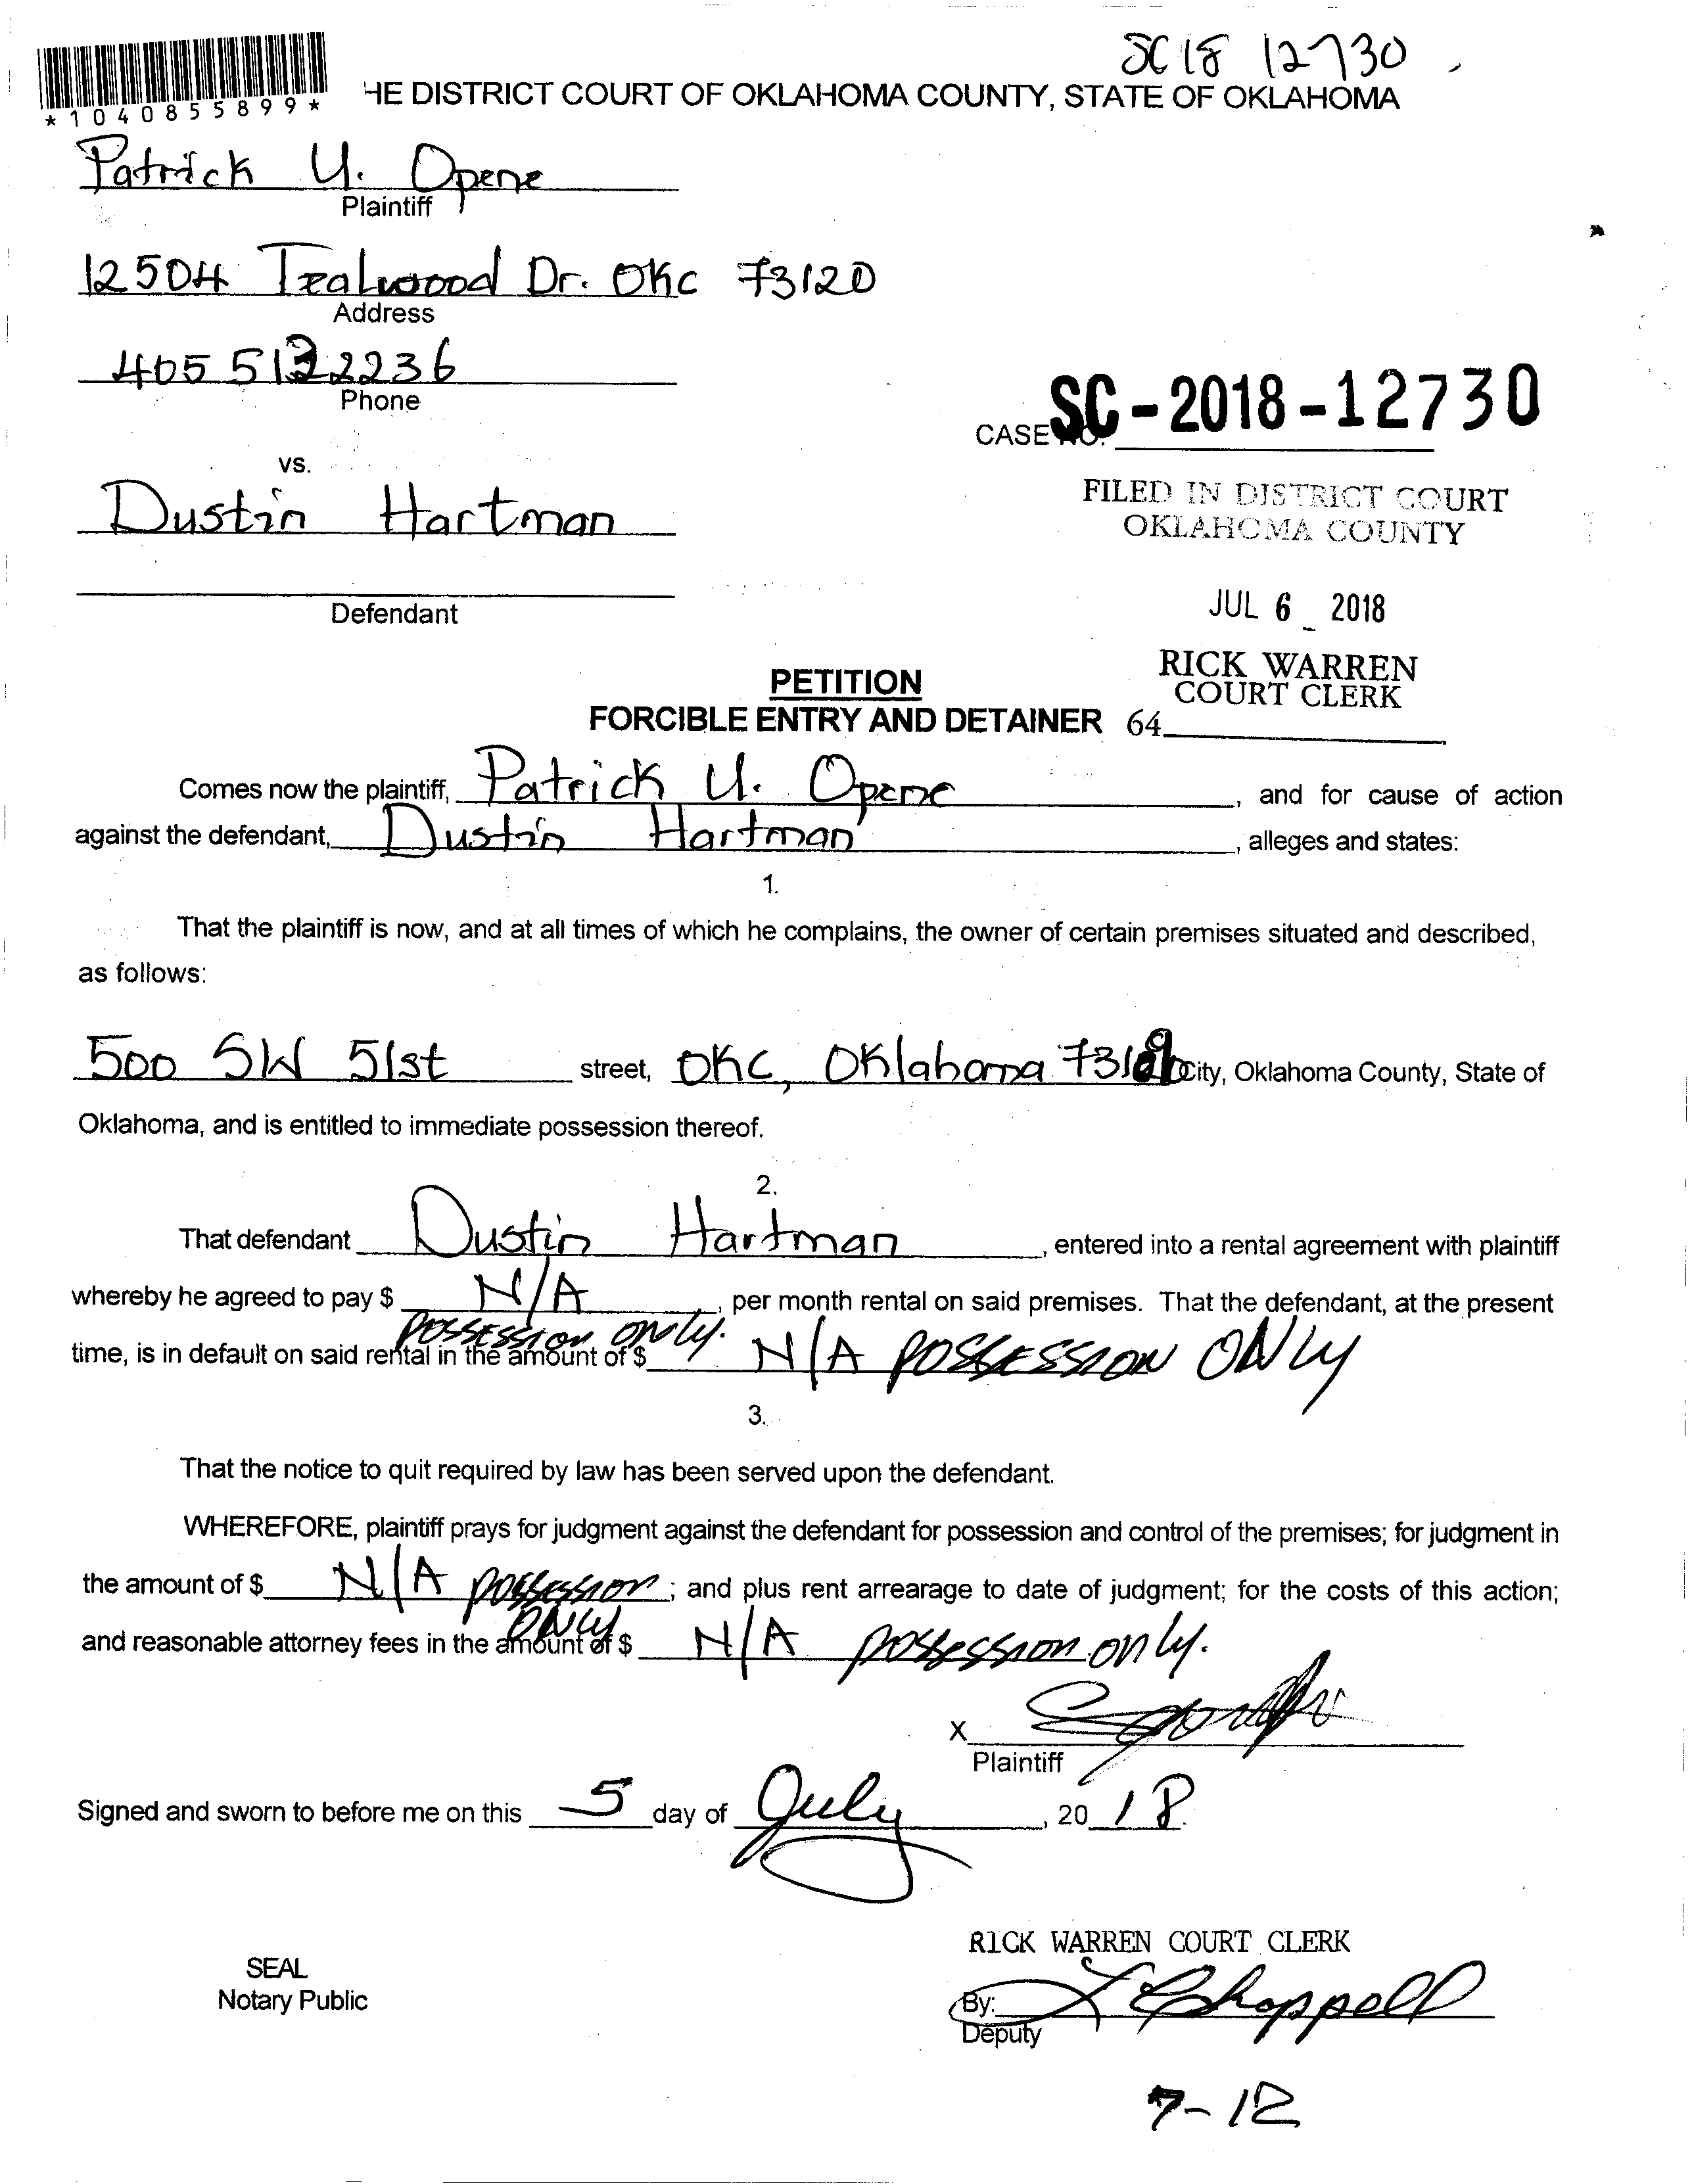 SC 18 12730
HE DISTRICT COURT OF OKLAHOMA COUNTY, STATE OF OKLAHOMA
*1040855899*
Patrick U. Opene
Plaintiff
12504 Tealwood Dr. OKC 73120
Address
405 5122236
Phone
SC-2018-12730
CASE NO.
vs.
Dustin Hartman
FILED IN DISTRICT COURT
OKLAHOMA COUNTY
Defendant
JUL 6 2018
RICK WARREN
COURT CLERK
PETITION
FORCIBLE ENTRY AND DETAINER 64
Comes now the plaintiff, Patrick U. Opene, and for cause of action
against the defendant, Dustin Hartman, alleges and states:
1.
That the plaintiff is now, and at all times of which he complains, the owner of certain premises situated and described,
as follows:
500 SW 51st street, OKC, Oklahoma City, Oklahoma County, State of
Oklahoma, and is entitled to immediate possession thereof.
2.
That defendant Dustin Hartman, entered into a rental agreement with plaintiff
whereby he agreed to pay $ N/A, per month rental on said premises. That the defendant, at the present
possession only.
time, is in default on said rental in the amount of $ N/A POSSESSION ONLY
3.
That the notice to quit required by law has been served upon the defendant.
WHEREFORE, plaintiff prays for judgment against the defendant for possession and control of the premises; for judgment in
the amount of $ N/A possession; and plus rent arrearage to date of judgment; for the costs of this action;
ONLY
and reasonable attorney fees in the amount of $ N/A possession only.
X
Plaintiff
Signed and sworn to before me on this 5 day of July, 20 18.
RICK WARREN COURT CLERK
SEAL
Notary Public
By: Chappell
Deputy
7-12